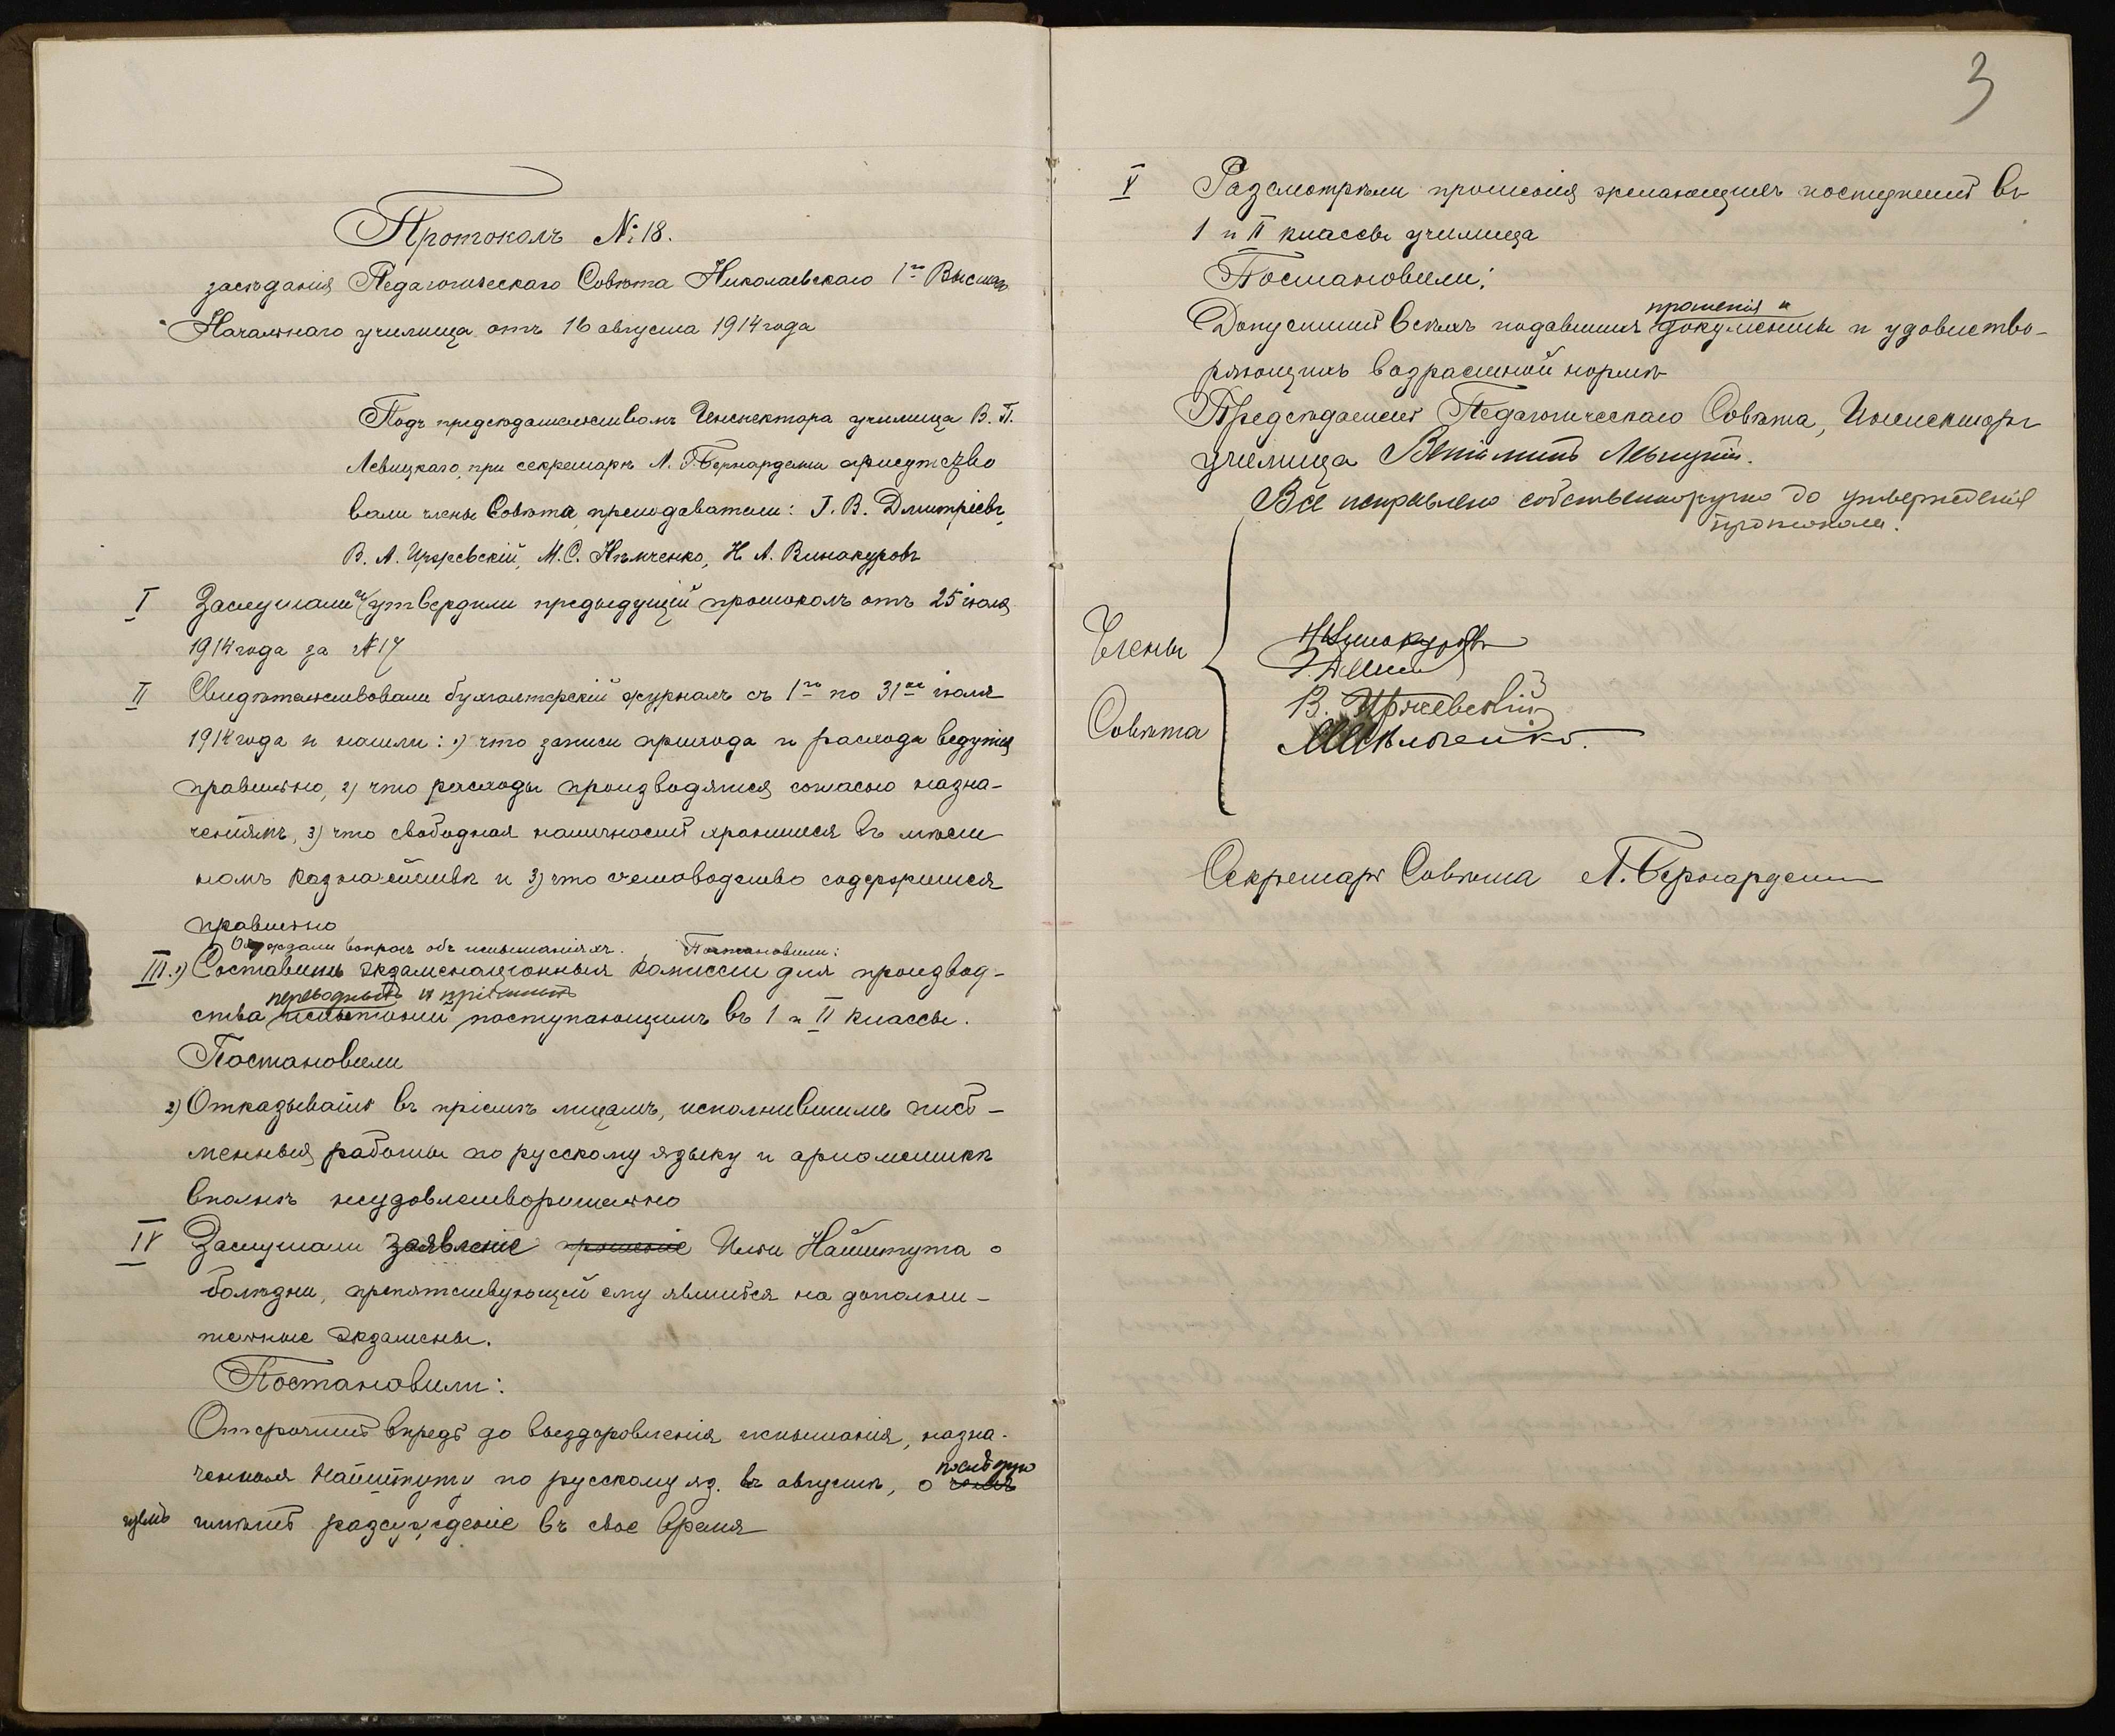 Протоколъ №18.
засѣданія Педагогическаго Совѣта Николаевскаго 1го Высшаго
Начальнаго училища отъ 16 августа 1914 года
Подъ предсѣдательствомъ Инспектора училища В. П.
Левицкаго, при секретарѣ Л. Г. Бернардели присутство
вали члены Совѣта, преподаватели: Г. В. Дмитріевъ,
В. А. Иржевскій, М. С. Нѣмченко, Н. А. Винокуровъ
I Заслушали и утвердили предыдущій протоколъ отъ 25 іюля
1914 года за №17
II Свидѣтельствовали бухгалтерскій журналъ съ 1го по 31ое іюля
1914 года и нашли: 1) что записи прихода и расхода ведутся
правильно, 2) что расходы производятся согласно назна-
ченіямъ, 3) что свободная наличность хранится въ мѣст
номъ казначействѣ и 3) что счетоводство содержится
правильно
Обсуждали вопросъ объ испытаніяхъ. Постановили:
III. 1) Составить экзаменаціонныя комиссіи для производ-
переводныхъ и пріемныхъ
ства испытаній поступающимъ въ 1 и II классы.
Постановили
2) Отказывать въ пріемѣ лицамъ, исполнившимъ пись-
менныя работы по русскому языку и ариѳметикѣ
вполнѣ неудовлетворительно
IV Заслушали заявленіе прошеніе Ильи Найштута о
болѣзни, препятствующей ему явиться на дополни-
тельные экзамены.
Постановили:
Отсрочить впредь до выздоровленія испытанія, назна-
ченныя Найштуту по русскому яз. въ августѣ, о чемъ
имѣть разсужденіе въ свое время
3
V Разсмотрѣли прошенія желающихъ поступить въ
1 и II классы училища
Постановили:
прошенія и
Допустить всѣхъ подавшихъ документы и удовлетво-
ряющихъ возрастной нормѣ
Предсѣдатель Педагогическаго Совѣта, Инспекторъ
училища
Все исправлено собственноручно до утвержденія
протокола.
Члены
Совѣта
Н. Винокуровъ
В. Иржевскій
М. Нѣмченко.
Секретарь Совѣта Л. Бернардели